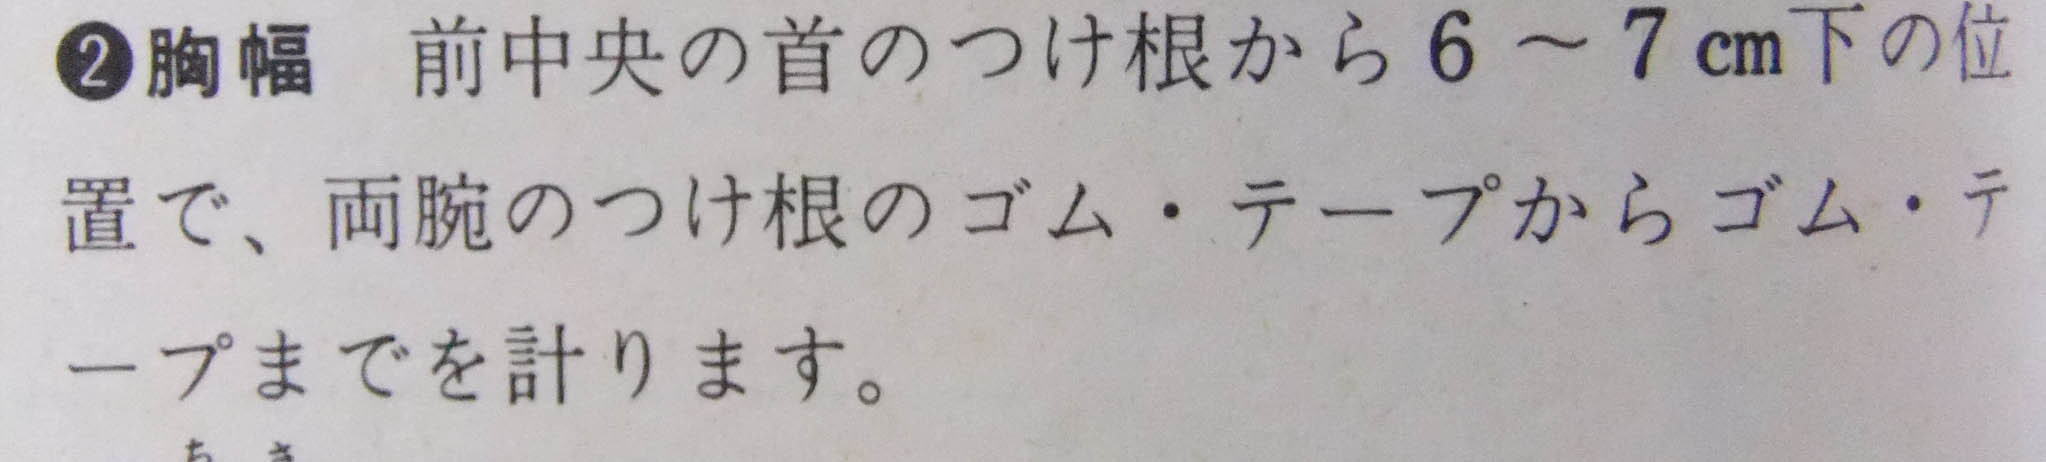 ❷胸幅　前中央の首のつけ根から6～7cm下の位
置で、両腕のつけ根のゴム・テープからゴム・テ
ープまでを計ります。
ちさ